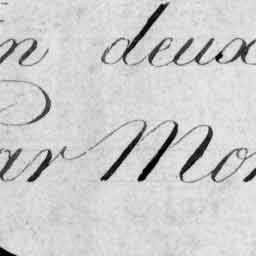 en deux
Par Mon